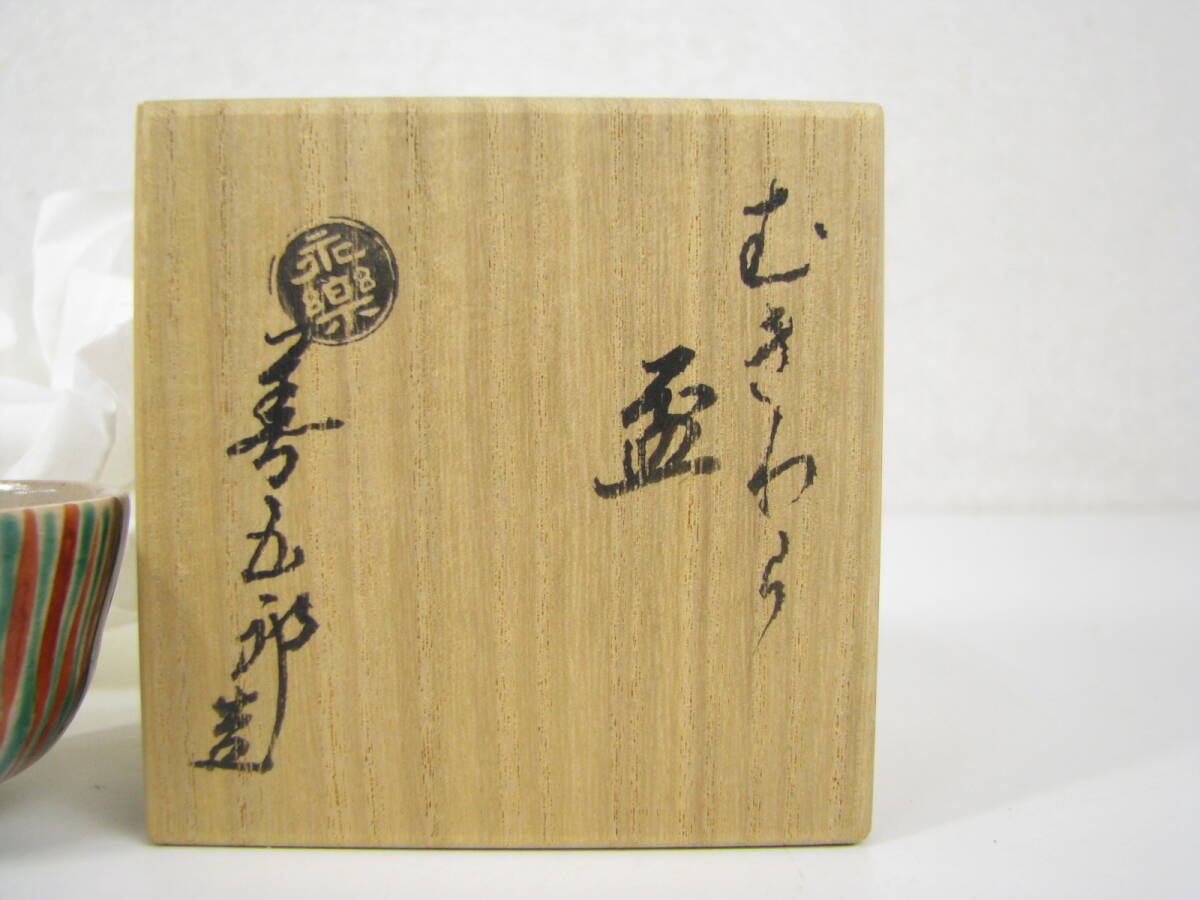 むぎわら
盃
永樂
善五郎造